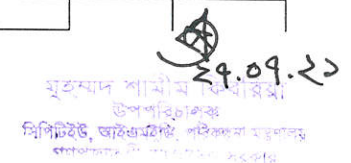 ২৭.০৭.২১
মুহম্মদ শামীম কিবরিয়া
উপপরিচালক
সিপিটিইউ, আইএমইডি, পরিকল্পনা মন্ত্রণালয়
সরকার